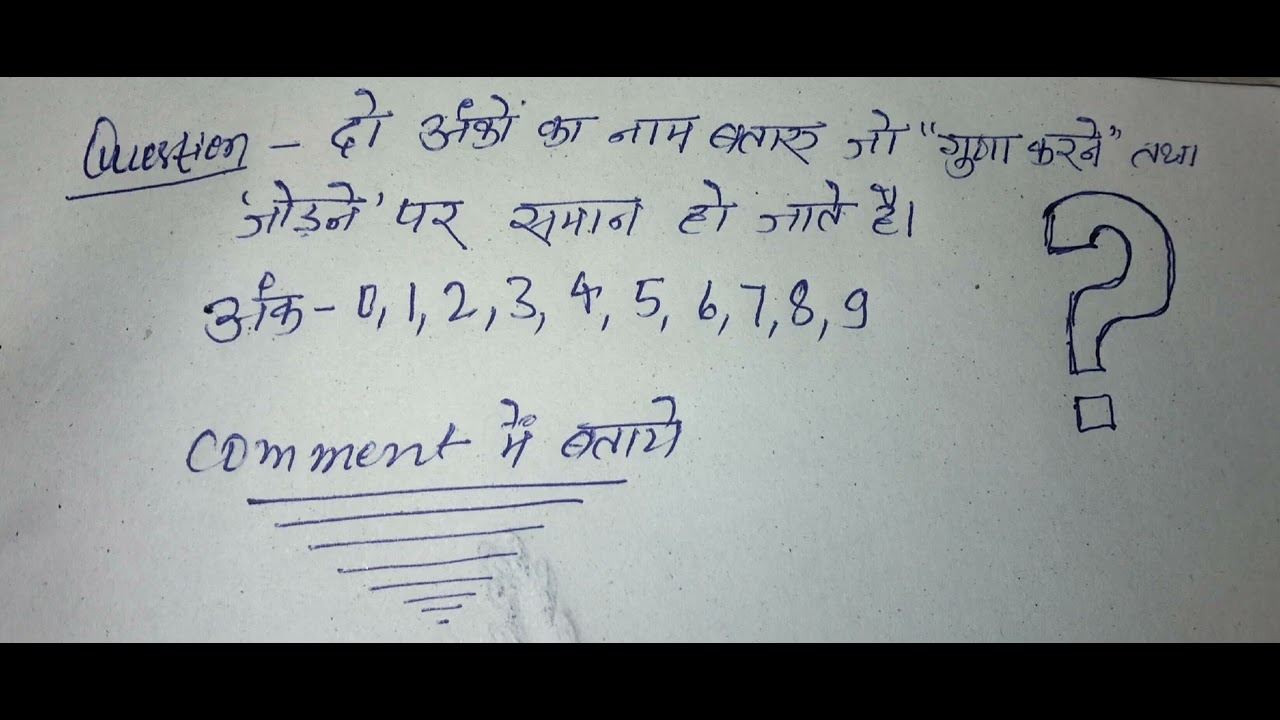 Question - दो अंकों का नाम बताए जो "गुणा करने" तथा
'जोड़ने' पर समान हो जाते है।
अंक - 0, 1, 2, 3, 4, 5, 6, 7, 8, 9
?
comment में बताये